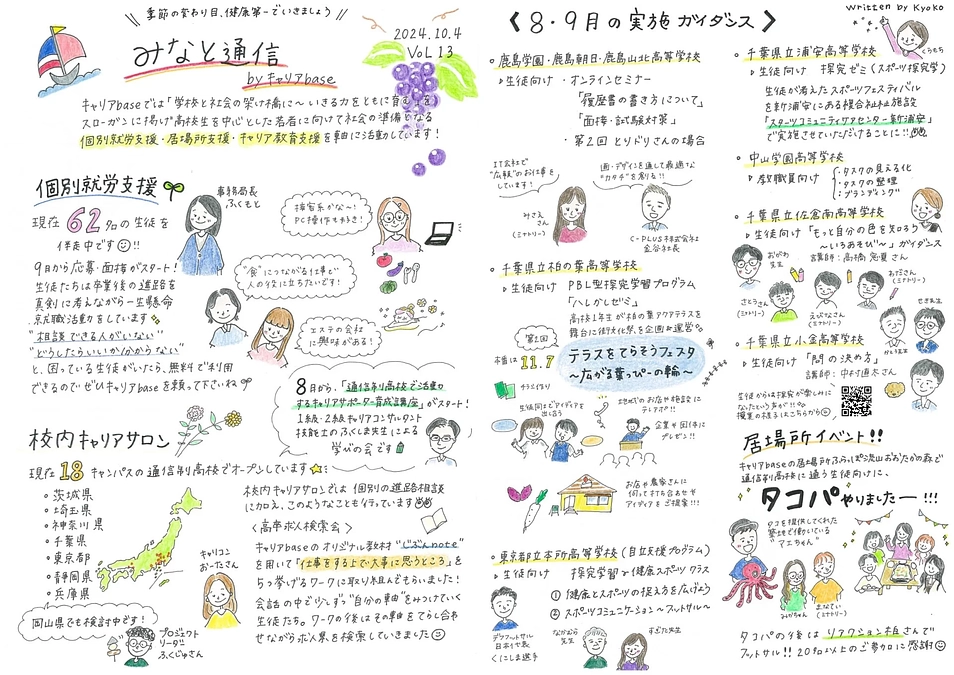 季節の変わり目、健康第一でいきましょう
2024.10.4
VoL 13
みなと通信
by キャリアbase
キャリアbaseでは「学校と社会の架け橋に〜いきる力をともに育む」を
スローガンに掲げ高校生を中心とした若者に向けて社会の準備となる
個別就労支援・居場所支援・キャリア教育支援を軸に活動しています!
個別就労支援
事務局長
ふくもと
現在 62名の生徒を
伴走中です!!
9月から応募・面接がスタート!
生徒たちは卒業後の進路を
真剣に考えながら一生懸命
就職活動をしています
"相談できる人がいない"
"どうしたらいいか分からない"
と、困っている生徒がいたら、無料で利用
できるのでぜひキャリアbaseを頼って下さいね
接客系かな〜!
PC操作も好き!
"食"につながる仕事で
人の役に立ちたいです!
エステの会社
に興味がある!
8月から、「通信制高校で活動
するキャリアサポーター育成講座」がスタート!
1級・2級キャリアコンサルタント
技能士のふくしま先生による
学びの会です
校内キャリアサロン
現在 18 キャンパスの通信制高校でオープンしています
・茨城県
・埼玉県
・神奈川県
・千葉県
・東京都
・静岡県
・兵庫県
岡山県でも検討中です!
プロジェクト
リーダー
ふくじゅさん
キャリコン
おーたさん
校内キャリアサロンでは 個別の進路相談
に加え、このようなことも行っています
〈高卒求人検索会〉
キャリアbaseのオリジナル教材"じぶんnote"
を用いて「仕事をする上で大事に思うところ」を
5つ挙げるワークに取り組んでもらいました!
会話の中で少しずつ"自分の軸"をみつけていく
生徒たち。ワークの後はその軸をてらし合わ
せながら求人票を検索していきました
〈8・9月の実施ガイダンス〉
written by Kyoko
・鹿島学園・鹿島朝日・鹿島山北高等学校
▷生徒向け ・オンラインセミナー
「履歴書の書き方について」
「面接・試験対策」
・第2回 とりどりさんの場合
IT会社で
"広報"のお仕事を
しています!
みさえ
さん
(ミナトリー)
画・デザインを通して最適な
"カタチ"を創る!!
C-PLUS株式会社
金谷社長
・千葉県立柏の葉高等学校
▷生徒向け PBL型探究学習プログラム
「ハしかしゼミ」
高校1年生が柏の葉アクアテラスを
舞台に街文化祭を企画&運営
第2回
本番は 11.7
テラスをてらそうフェスタ
〜広がる葉っぴーの輪〜
チラシ作り
生徒同士でアイディアを
出し合う
地域のお店や施設に
テレアポ!!
企業や団体に
プレゼン!!
お店や農家さんに
伺って打ち合わせや
アイディアをご提案!!!
・東京都立本所高等学校(自立支援プログラム)
▷生徒向け 探究学習 健康スポーツクラス
① 健康とスポーツの捉え方を広げよう
② スポーツコミュニケーション〜フットサル〜
デフフットサル
日本代表
くにしま選手
なかむら
先生
すぎた先生
・千葉県立浦安高等学校
くらもち
▷生徒向け 探究ゼミ(スポーツ探究学)
生徒が考えたスポーツフェスティバル
を新浦安にある複合福祉施設
「スターツコミュニティケアセンター新浦安」
で実施させていただけることに!!
・中山学園高等学校
▷教職員向け
・タスクの見える化
・タスクの整理
・ブランディング
・千葉県立佐倉南高等学校
▷生徒向け「もっと自分の色を知ろう
〜いろあそび〜」ガイダンス
講師:高橋 さん
おがわ
先生
さとうさん
(ミナトリー)
えびなさん
(ミナトリー)
おださん
(ミナトリー)
せき先生
・千葉県立小金高等学校
▷生徒向け「問の決め方」
講師:中村直太さん
生徒からは探究が楽しみに
なったという声が!!
授業の様子はこちらから
居場所イベント!!
キャリアbaseの居場所ふらっぽ流山おおたかの森で
通信制高校に通う生徒向けに、
タコパやりましたー!!!
タコを提供してくれた
築地で働いている
マエちゃん
みかちゃん
まなてぃ
(ミナトリー)
タコパの後はリアクション柏さんで
フットサル!! 20名以上のご参加に感謝